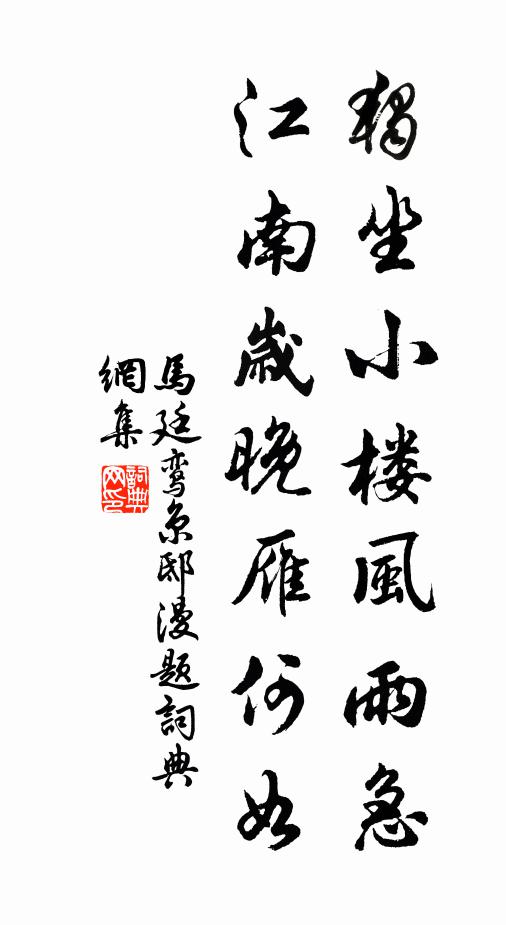 獨坐小楼風雨急
江南歲晚雁何如
馬廷鸾京邸漫題詞典
網集
詞典
网印